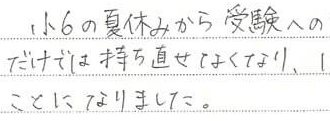 小6の夏休みから受験への
だけでは持ち直せなくなり、
ことになりました。